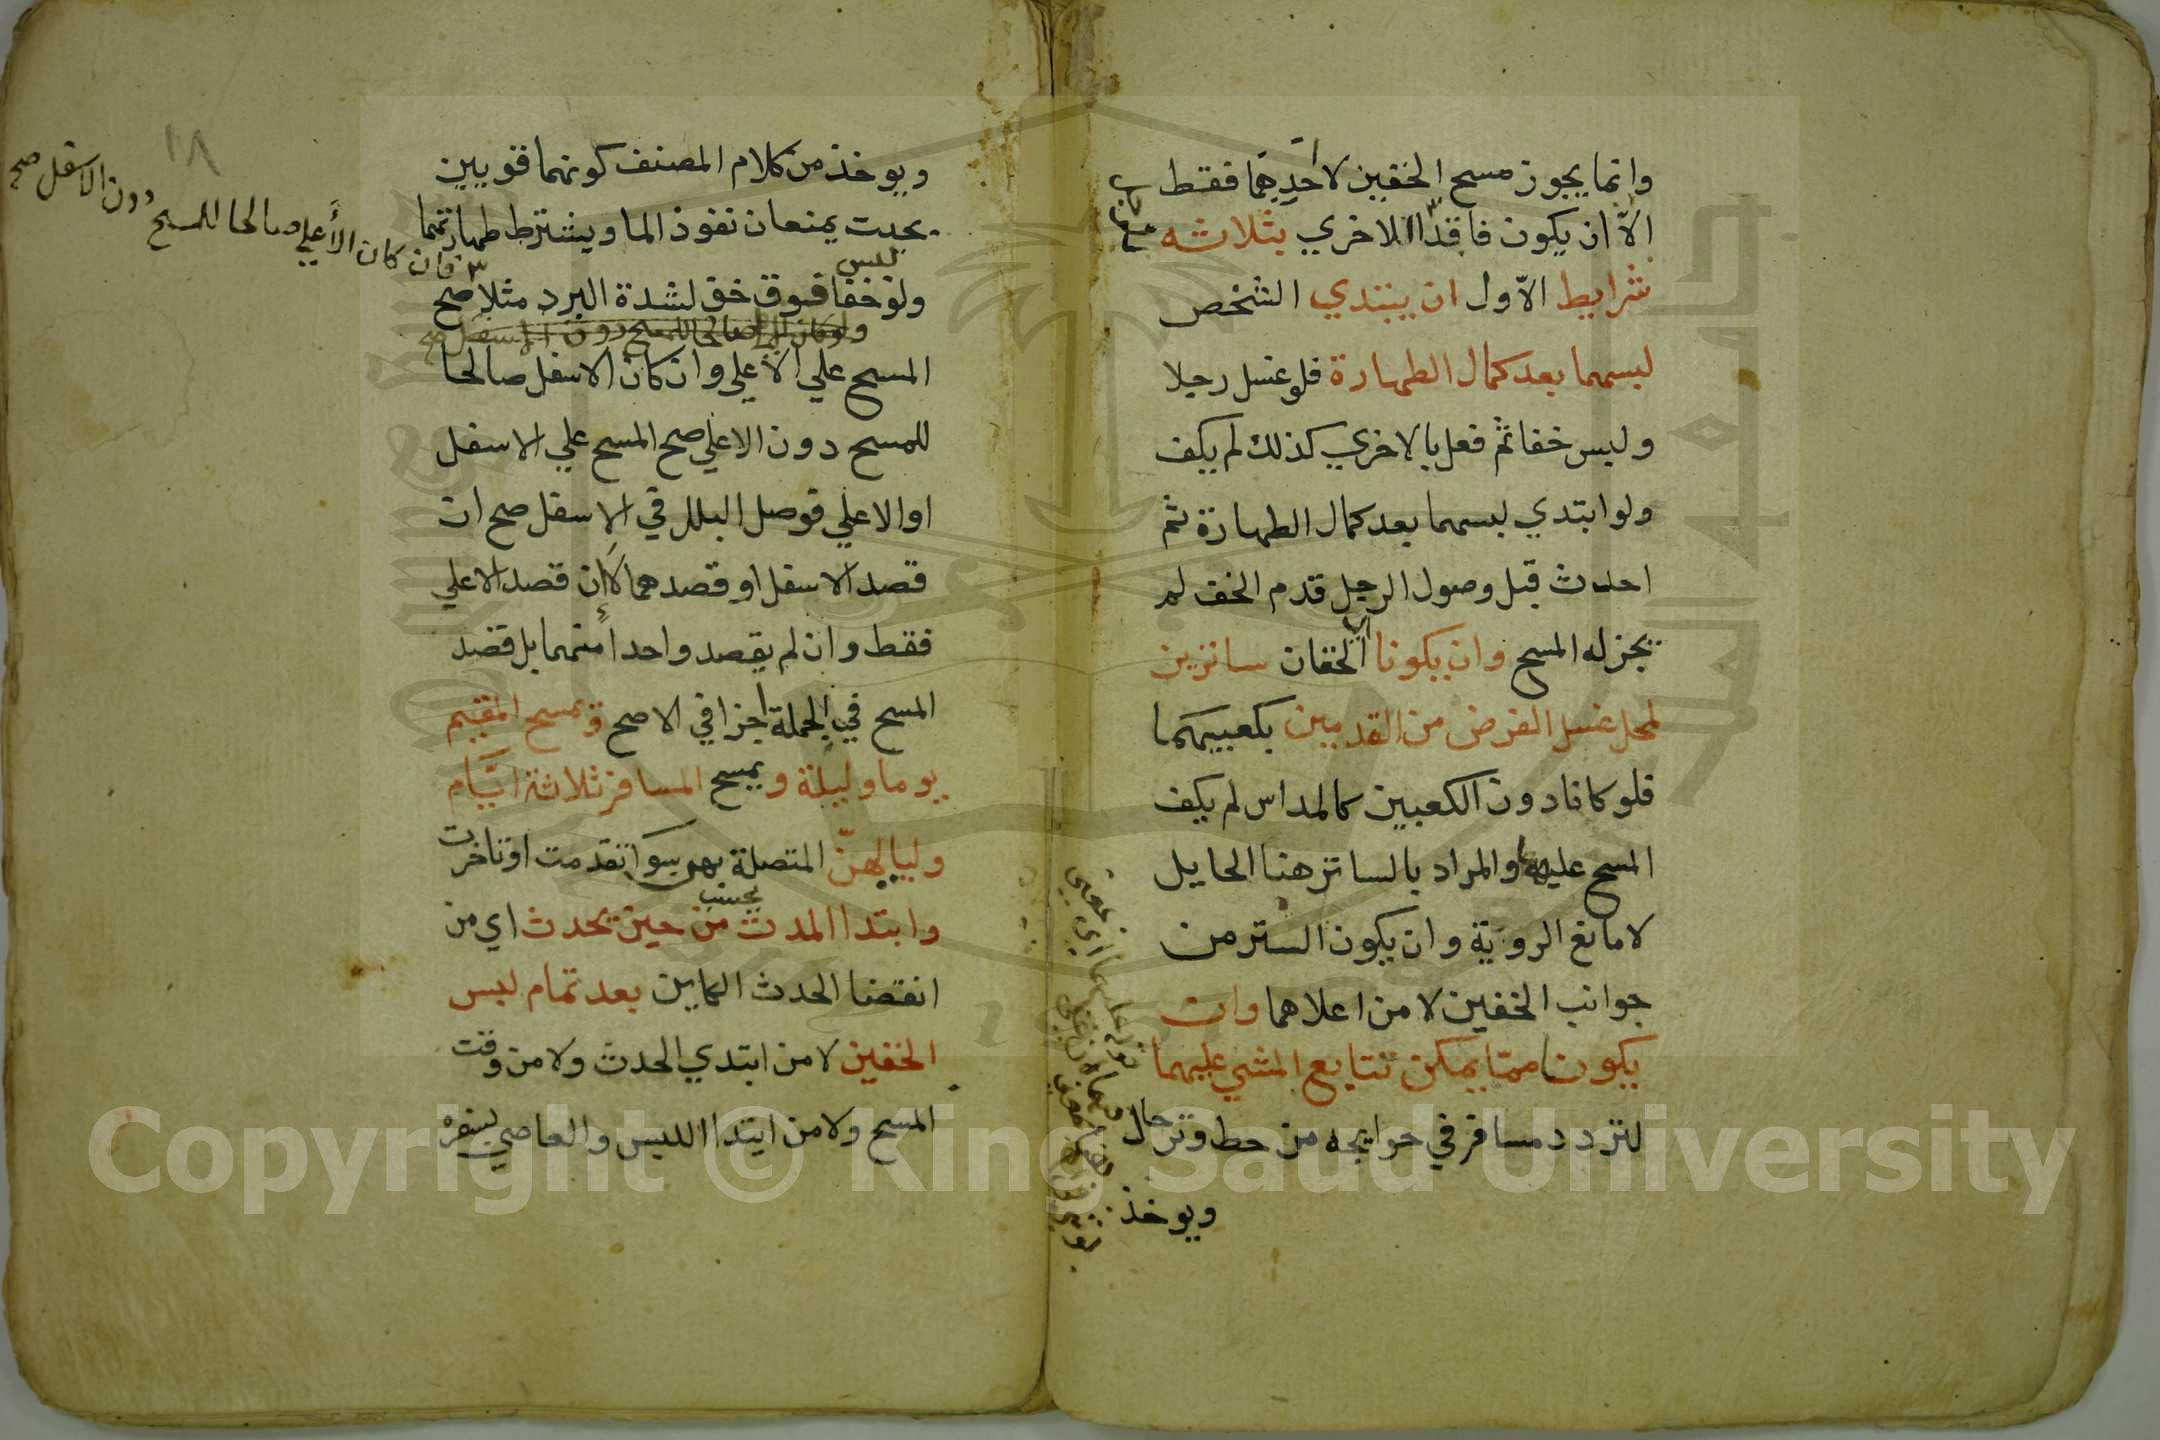 وانما يجوز مسح الخفين لا احدهما فقط
الا ان يكون فاقد الاخري بثلاثه
شرايط الاول ان يبتدي الشخص
لبسهما بعد كمال الطهارة فلو غسل رجلا
ولبس خفا ثم فعل بالاخري كذلك لم يكف
ولو ابتدي لبسهما بعد كمال الطهارة ثم
احدث قبل وصول الرجل قدم الخف لم
يجز له المسح وان يكونا اي الخفان ساترين
لمحل غسل الفرض من القدمين بكعبيهما
فلو كانا دون الكعبين كالمداس لم يكف
المسح عليهما والمراد بالساتر هنا الحايل
لا مانع الروية وان يكون الستر من
جوانب الخفين لا من اعلاهما وان
يكونا مما يمكن تتابع المشي عليهما
لتردد مسافر في حوايجه من حط وترحال
ويوخذ
ويوخذ من كلام المصنف كونهما قويين
بحيث يمنعان نفوذ الما ويشترط طهارتهما
ولو لبس خفا فوق خف لشدة البرد مثلا صح
فان كان الأعلي صالحا للمسح دون الاسفل صح
المسح علي الاعلي وان كان الاسفل صالحا
للمسح دون الاعلي صح المسح علي الاسفل
او الاعلي فوصل البلل في الاسفل صح ان
قصد الاسفل او قصدهما لا ان قصد الاعلي
فقط وان لم يقصد واحدا منهما بل قصد
المسح في الجملة اجزا في الاصح و يمسح المقيم
يوما وليلة و يمسح المسافر ثلاثة ايام
ولياليهن المتصلة بهن سوا تقدمت او تاخرت
وابتدا المدة تحسب من حين يحدث اي من
انقضا الحدث الكاين بعد تمام لبس
الخفين لا من ابتدي الحدث ولا من وقت
المسح ولا من ابتدا اللبس والعاصي بسفره
١٨
Copyright © King Saud University